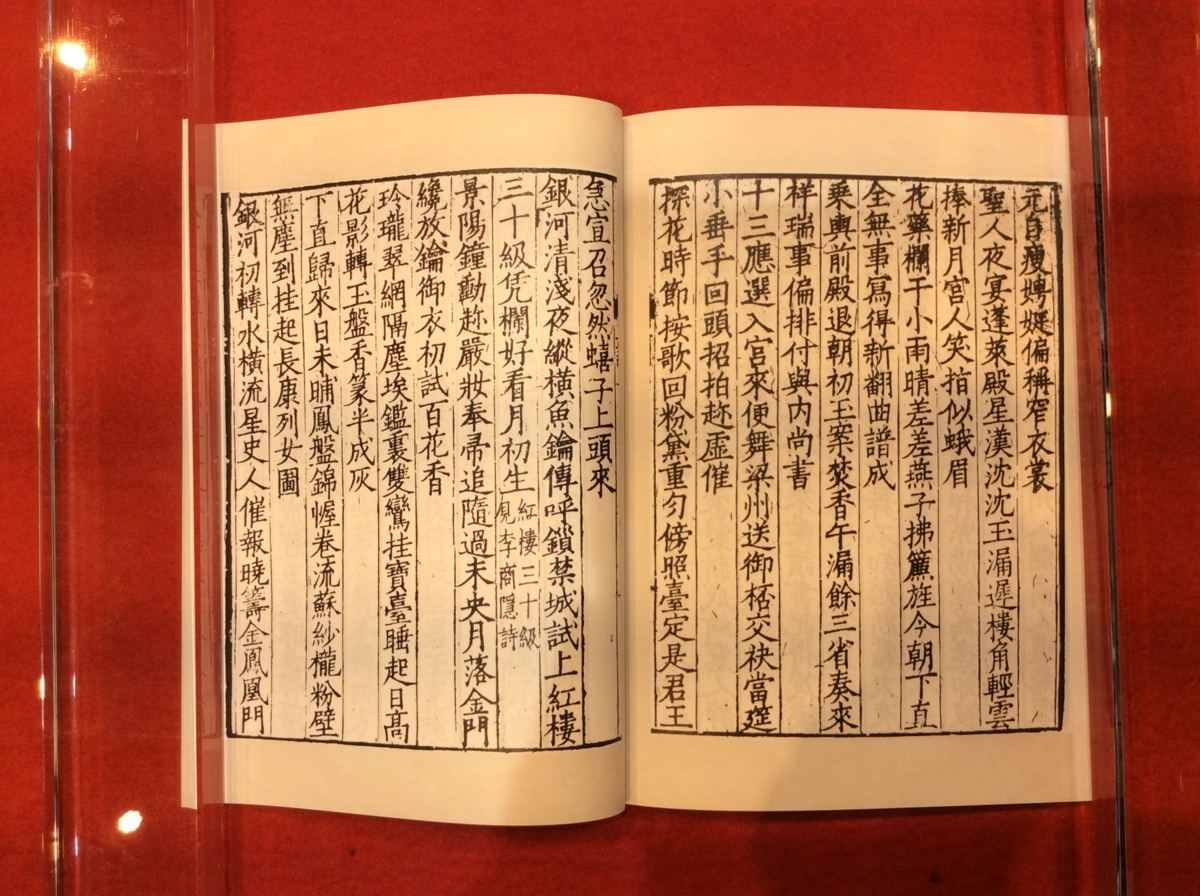 元自瘦娉婷偏稱窄衣裳
聖人夜宴蓬萊殿星漢沈沈玉漏遲樓角輕雲
捧新月宮人笑指似蛾眉
花藥欄干小雨晴差差燕子拂簾旌今朝下直
全無事寫得新翻曲譜成
乘輿前殿退朝初玉案焚香午漏餘三省奏來
祥瑞事偏排付與内尚書
十三應選入宮來便舞梁州送御桮交袂當筵
小垂手回頭招拍趂虛催
探花時節按歌回粉黛重勻傍照臺定是君王
急宣召忽然蟢子上頭來
銀河清淺夜縱橫魚鑰傳呼鎖禁城試上紅樓
三十級凭欄好看月初生紅樓三十級見李商隱詩
景陽鐘動趂嚴妝奉帚追隨過未央月落金門
纔放鑰御衣初試百花香
玲瓏翠網隔塵埃鑑裏雙鸞挂寶臺睡起日高
花影轉玉盤香篆半成灰
下直歸來日未晡鳳盤錦幄卷流蘇紗櫳粉壁
無塵到挂起長康列女圖
銀河初轉水横流星史人催報曉籌金鳳凰門